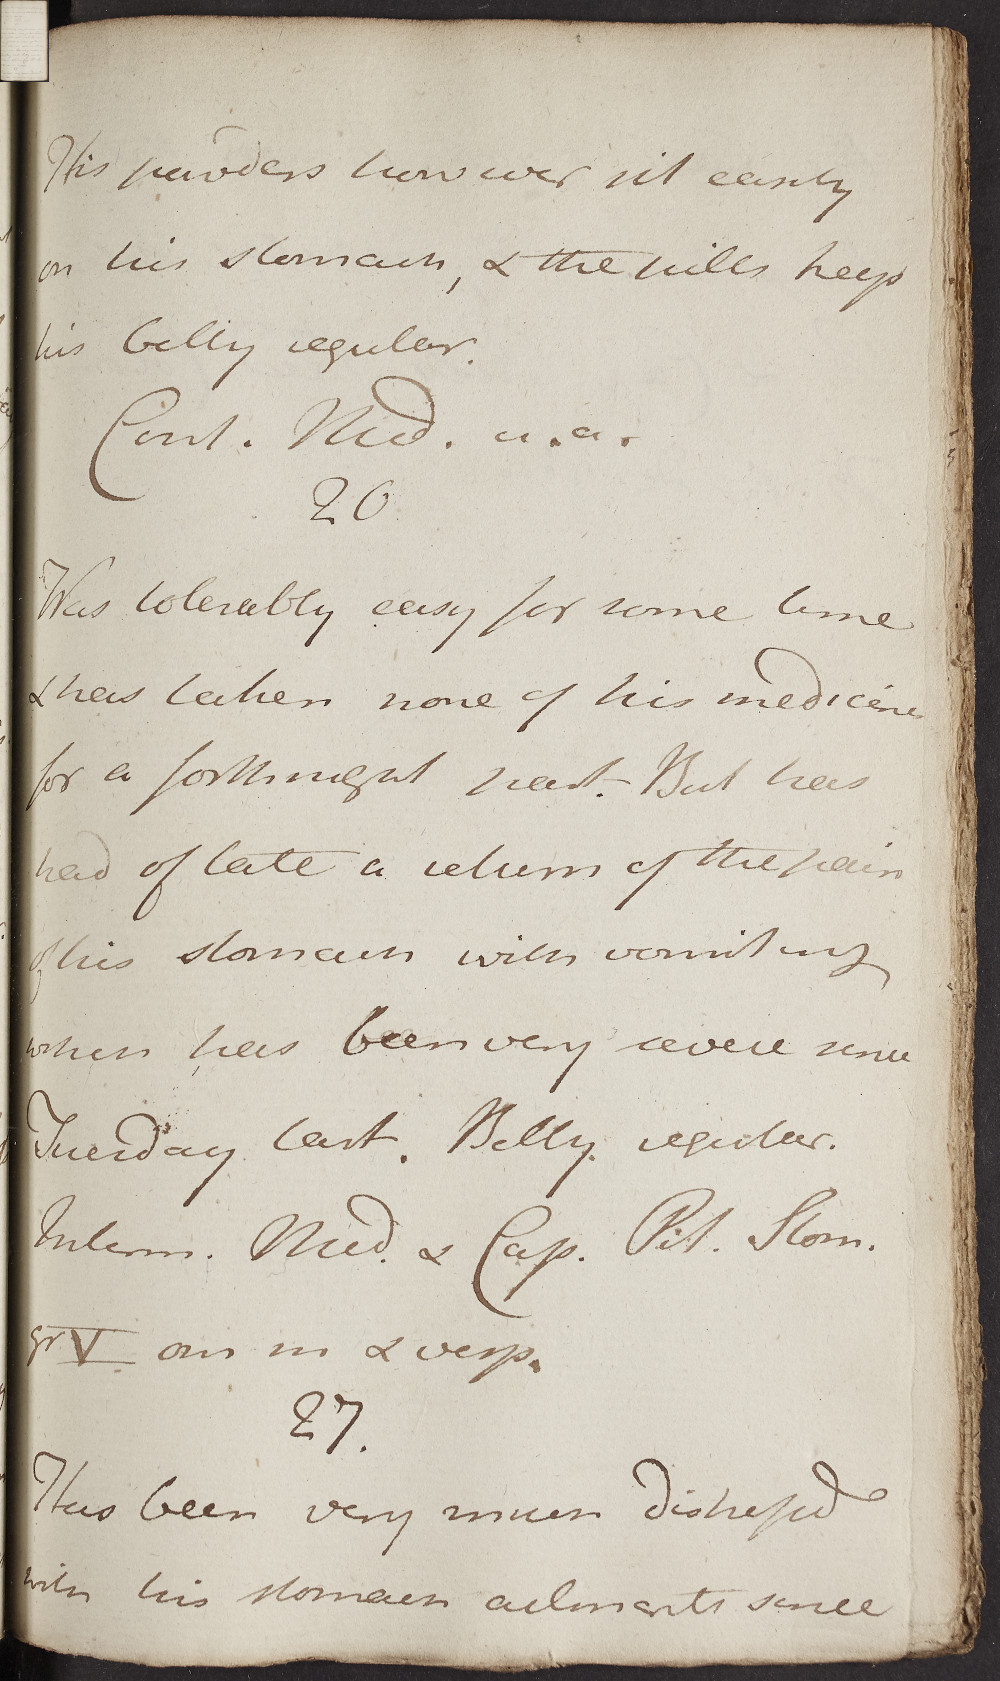 His powders however sit easily
on his stomach, & the pills keep
his belly regular.
Cont. Med. u.a.
20
Was tolerably easy for some time
& has taken none of his medicines
for a forthnight past. But has
had of late a return of the pain
of his stomach with vomiting
which has been very severe since
Tuesday last. Belly regular.
Interm. Med. & Cap. Pil. Stom.
gr V om m & vesp.
27.
Has been very much distressed
with his stomach ailments since